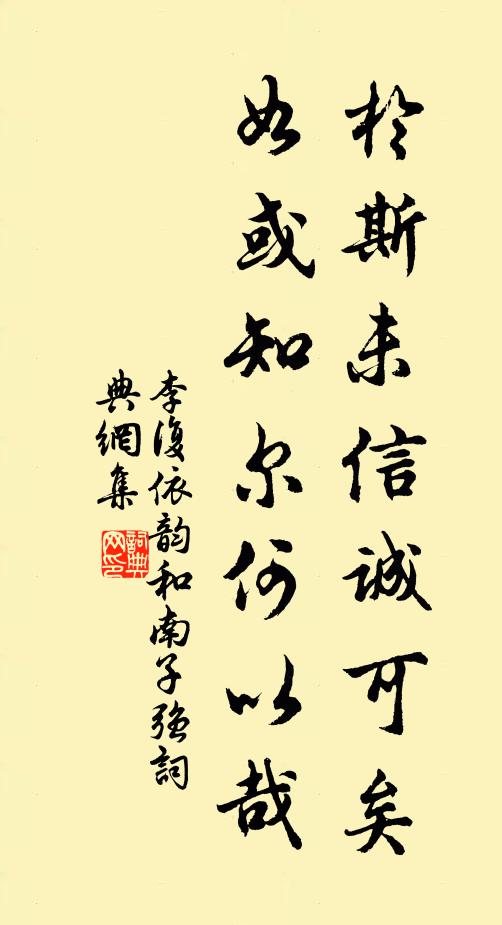 於斯未信誠可矣
如或知尔何以哉
李復依韵和南子強詞
典網集
詞典
网印